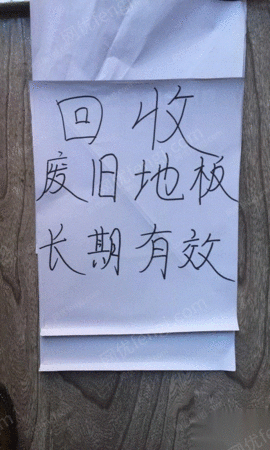 回收
废旧地板
长期有效